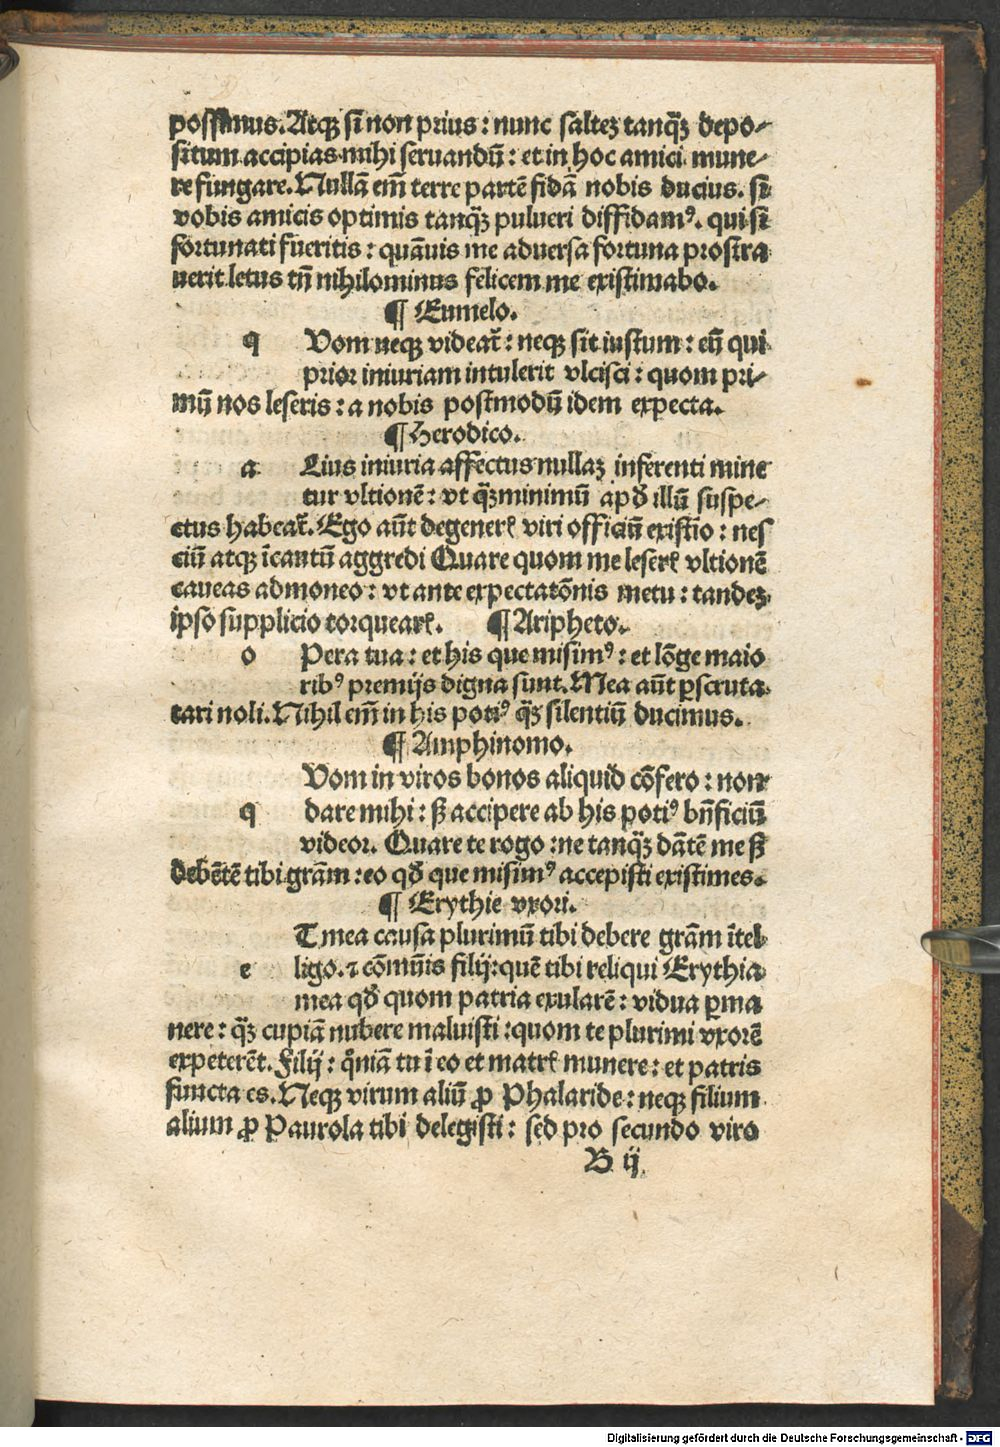 possimus. Atqꝫ si non prius: nunc salteꝫ tanqꝫ̃ depo⸗
situm accipias mihi seruandū: et in hoc amici mune⸗
re fungare. Nullā em̄ terre partē fidā nobis ducius. si
vobis amicis optimis tanqꝫ̃ pulueri diffidamꝰ. qui si
fortunati fueritis: quāuis me aduersa fortuna prostra
uerit letus tn̄ nihilominus felicem me existimabo.
¶ Eumelo.
q Vom neqꝫ videat̄: neqꝫ sit iustum: eū qui
prior iniuriam intulerit vlcisci: quom pri⸗
mū nos leseris: a nobis postmodū idem expecta.
¶ Herodico.
a Lius iniuria affectus nullaꝫ inferenti mine
tur vltionē: vt qꝫ̃minimū apđ illū suspe⸗
ctus habeat̄. Ego aūt degenerꝭ viri officiū existīo: nes
ciū atqꝫ īcautū aggredi Quare quom me leserꝭ vltionē
caueas admoneo: vt ante expectatōnis metu: tandeꝫ
ipso supplicio torquearꝭ. ¶ Aripheto.
o Pera tua: et his que misimꝰ: et lōge maio
ribꝰ premijs digna sunt. Mea aūt ꝑscruta
tari noli. Nihil em̄ in his potiꝰ qꝫ̃ silentiū ducimus.
¶ Amphinomo.
Vom in viros bonos aliquid cōfero: non
q dare mihi: sꝫ accipere ab his potiꝰ bn̄ficiū
videor. Quare te rogo: ne tanqꝫ̃ dātē me sꝫ
debētē tibi grām: eo qđ que misimꝰ accepisti existimes.
¶ Erythie vxori.
T mea causa plurimū tibi debere grām ītel
e ligo. ⁊ cōmūis filij: quē tibi reliqui Erythia
mea qđ quom patria exularē: vidua ꝑma
nere: qꝫ̃ cupiā nubere maluisti: quom te plurimi vxorē
expeterēt. Filij: qm̄iā tu ī eo et matrꝭ munere: et patris
functa es. Neqꝫ virum aliū ꝓ Phalaride: neqꝫ filium
alium ꝓ Paurola tibi delegisti: sed pro secundo viro
B ij
Digitalisierung gefördert durch die Deutsche Forschungsgemeinschaft - DFG